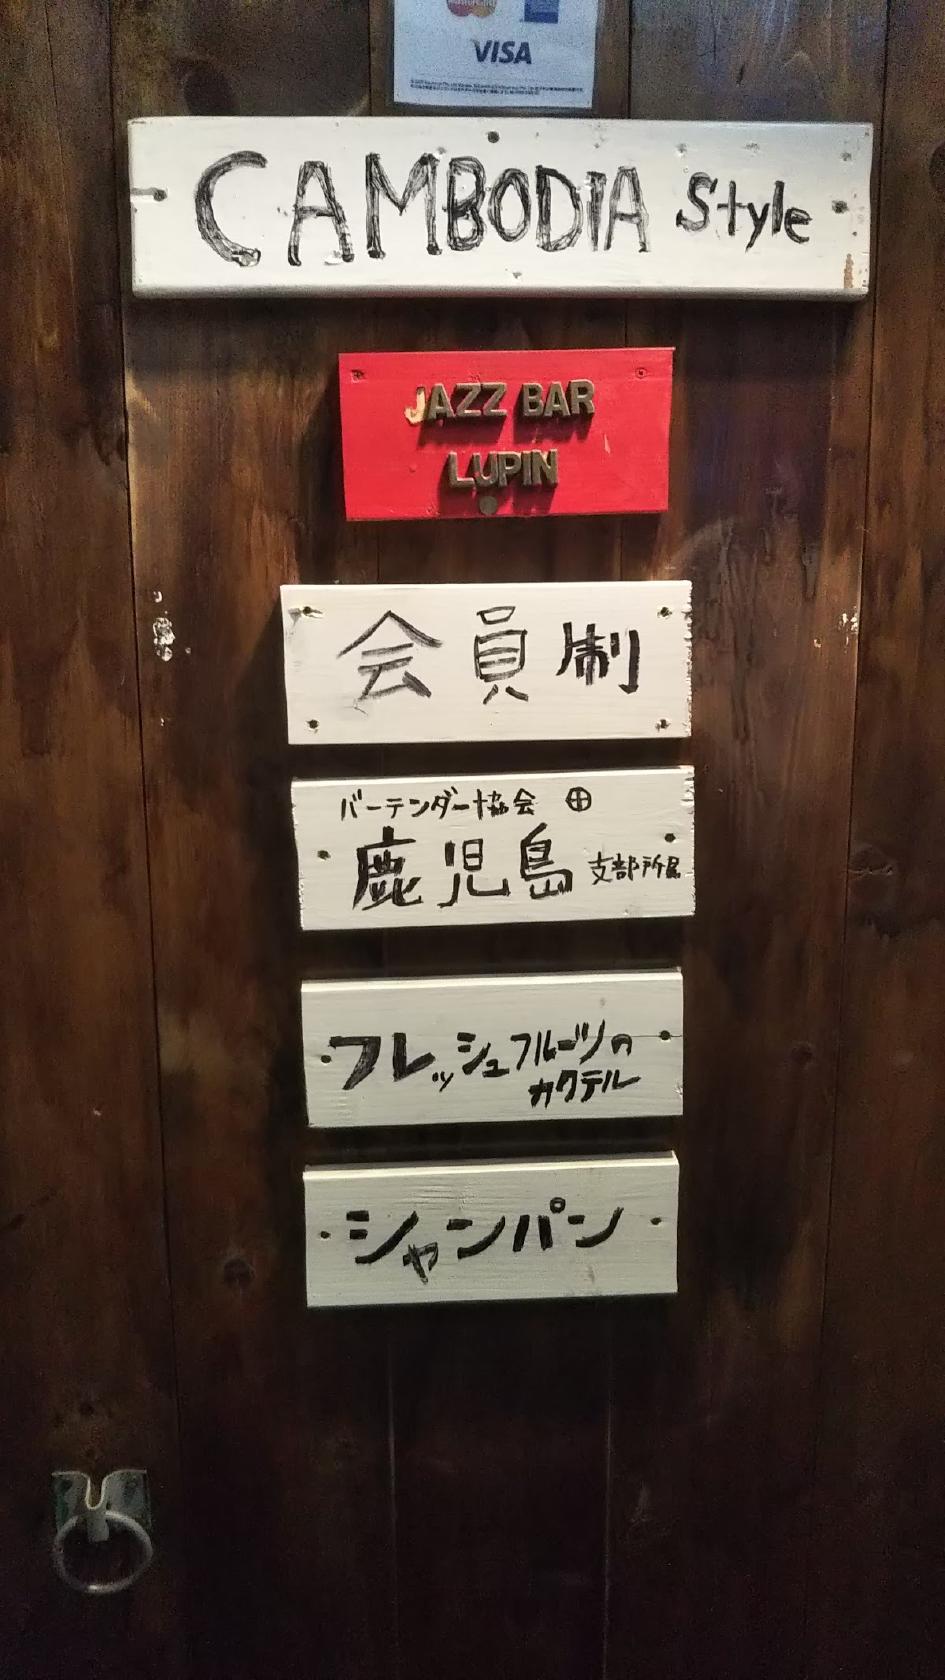 VISA
CAMBODIA Style
JAZZ BAR
LUPIN
会員制
バーテンダー協会
鹿児島 支部所属
フレッシュフルーツの
カクテル
シャンパン